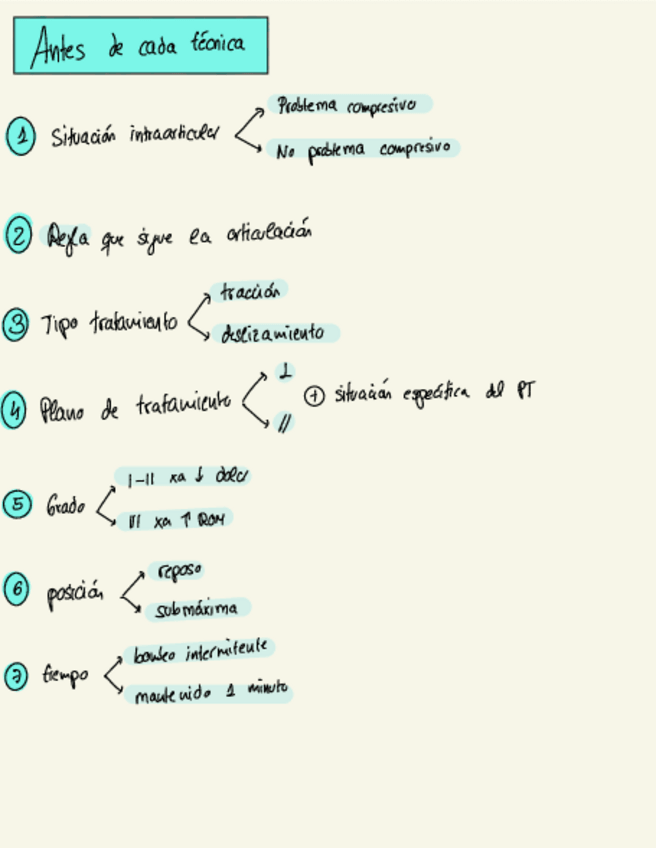 Antes de cada técnica
1 Situación intraarticular
Problema compresivo
No problema compresivo
2 Regla que sigue la articulación
3 Tipo tratamiento
tracción
deslizamiento
4 Plano de tratamiento
⊥
//
+ situación específica del PT
5 Grado
I-II xa ↓ dolor
III xa ↑ ROM
6 posición
reposo
submáxima
7 tiempo
bombeo intermitente
mantenido 1 minuto